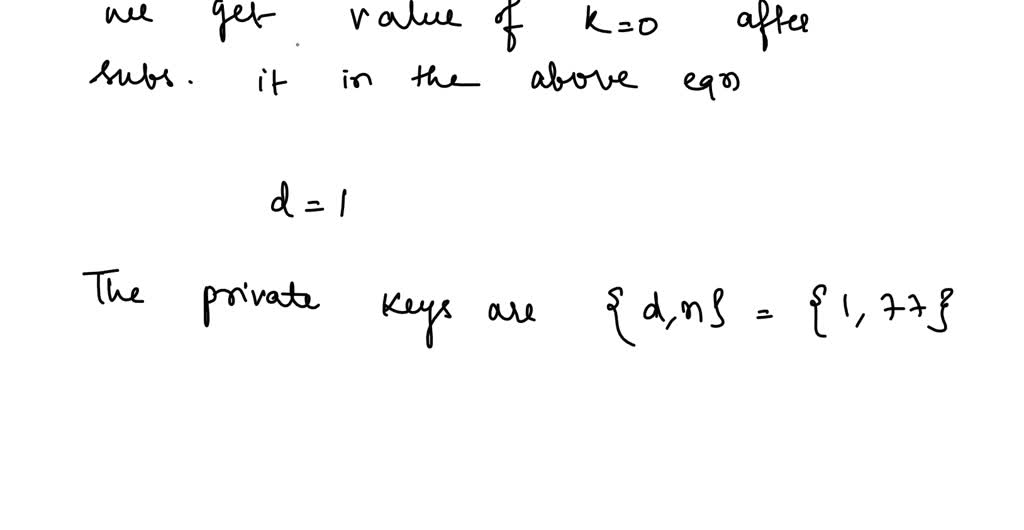 we get value of k=0 after
subs. it in the above eqn
d = 1
The private keys are {d,n} = {1, 77}